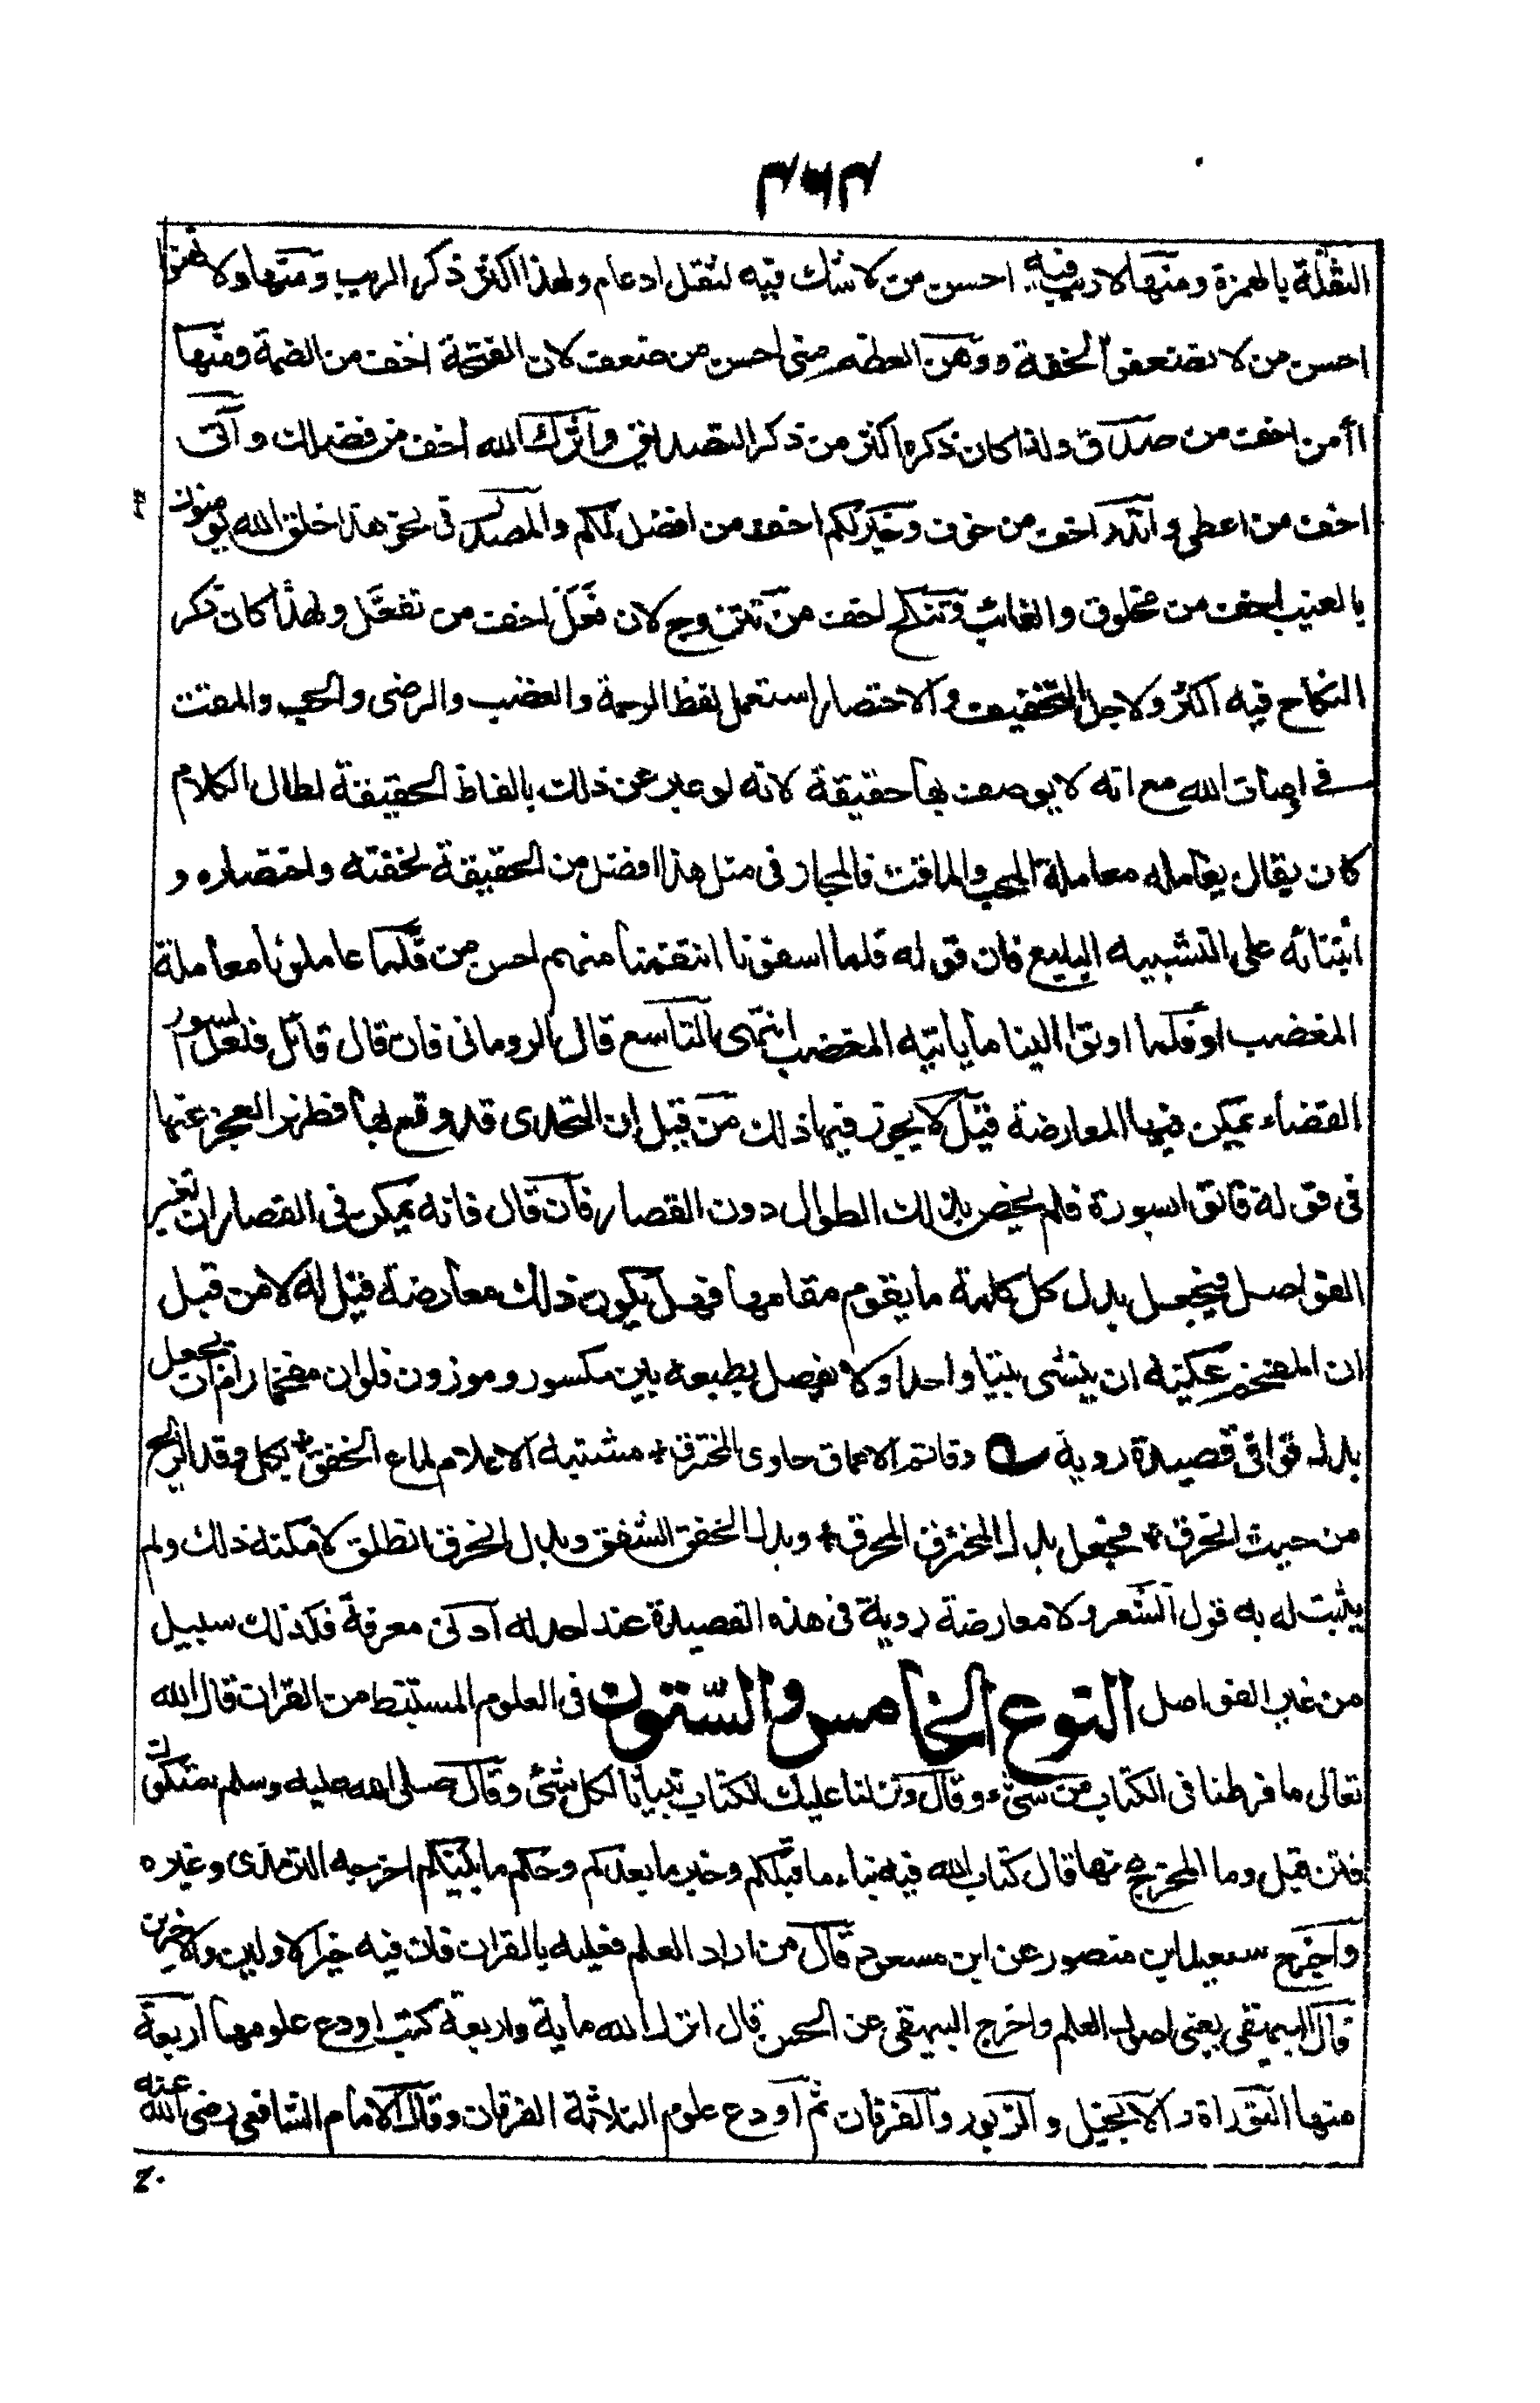 ٣٠٣
الثقلة بالهمزة ومنها لا ريب فيه احسن من لا شك فيه لثقل ادغام ولهذا اكثر ذكر الريب ومنها ولا تهنوا
احسن من لا تضعفوا لخفته ووهن العظم منى احسن من ضعف لان الفتحة اخف من الضمة ومنها
اأمن اخف من صدق ولذا كان ذكره اكثر من ذكر التصديق وآثرك الله اخف من فضلك وآتى
اخف من اعطى وانذر اخف من خوف وخير لكم اخف من افضل لكم والمصدر فى نحو هذا خلق الله يومنون
بالغيب اخف من مخلوق والغائب وتنكح اخف من تتزوج لان فَعَلَ اخف من تفعّل ولهذا كان ذكر
النكاح فيه اكثر ولاجل التخفيف والاختصار استعمل لفظ الرحمة والغضب والرضى والحب والمقت
فى اوصاف الله مع انه لا يوصف بها حقيقة لانه لو عبر عن ذلك بالفاظ الحقيقة لطال الكلام
كان يقال يعامله معاملة المحب والماقت فالمجاز فى مثل هذا افضل من الحقيقة لخفته واختصاره و
ابتنائه على التشبيه البليغ فان قوله فلما اسفونا انتقمنا منهم احسن من فلما عاملونا معاملة
المغضب او فلما اوتوا الينا ما ياتيه المغضب انتهى التاسع قال الرومانى فان قال قائل فلعل السور
القصار يمكن فيها المعارضة قيل لا يجوز فيها ذلك من قبل ان التحدى قد وقع بها فظهر العجز عنها
فى قوله فاتوا بسورة فلم يخص بذلك الطوال دون القصار فان قال فانه يمكن فى القصار ان تغير
الفواصل فيجعل بدل كل كلمة ما يقوم مقامها فهل يكون ذلك معارضة قيل له لا من قبل
ان المفخم يمكنه ان ينشى بيتا واحدا ولا يفصل بطبعه بين مكسور وموزون فلو ان مفخما رام ان يجعل
بدل قوافى قصيدة روية وقاتم الاعماق حاوى المخترق + مشتبه الاعلام لماع الخفق + يكل وفد الريح
من حيث انخرق + فجعل بدل المخترق المحرق + وبدل الخفق الشفق وبدل انخرق انطلق لامكنه ذلك ولم
يثبت له به قول الشعر ولا معارضة روية فى هذه القصيدة عند احد له ادنى معرفة فكذلك سبيل
من غير الفواصل النوع الخامس والستون فى العلوم المستبنط من القران قال الله
تعالى ما فرطنا فى الكتاب من شىء وقال ونزلنا عليك الكتاب تبيانا لكل شئ وقال صلى الله عليه وسلم ستكون
فتن قيل وما المخرج منها قال كتاب الله فيه نباء ما قبلكم وخبر ما بعدكم وحكم ما بينكم اخرجه الترمذى وغيره
واخرج سعيد ابن منصور عن ابن مسعود قال من اراد العلم فعليه بالقران فان فيه خبر الاولين والاخرين
قال البيهقى يعنى اصول العلم واخرج البيهقى عن الحسن قال انزل الله مأية واربعة كتب اودع علومها اربعة
منها التوراة والانجيل والزبور والفرقان ثم اودع علوم الثلاثة الفرقان وقال الامام الشافعى رضى الله عنه